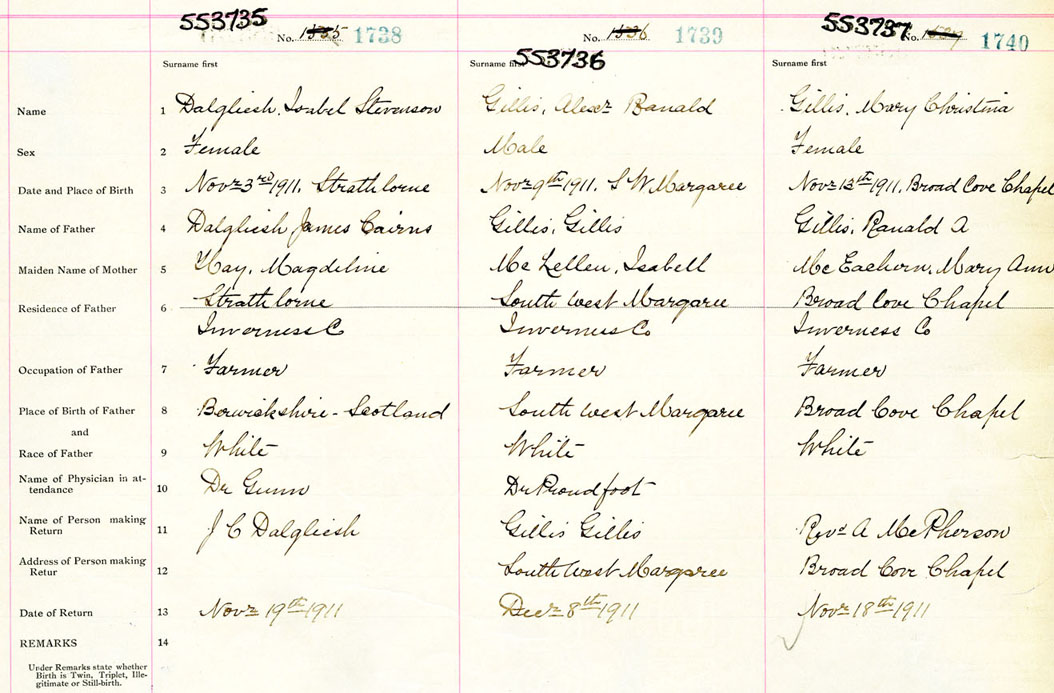 553735 No. 1535 1738
553736 No. 1536 1739
553737 No. 1537 1740
Surname first Surname first Surname first
Name 1 Dalgliesh, Isabel Stevenson Gillis, Alexr Ranald Gillis, Mary Christina
Sex 2 Female Male Female
Date and Place of Birth 3 Novr 3rd 1911, Strathlorne Novr 9th 1911, S W Margaree Novr 13th 1911, Broad Cove Chapel
Name of Father 4 Dalgliesh James Cairns Gillis, Gillis Gillis, Ranald A
Maiden Name of Mother 5 Hay, Magdeline Mc Lellen, Isabell Mc Eachern, Mary Ann
Residence of Father 6 Strathlorne South West Margaree Broad Cove Chapel
Inverness C Inverness Co Inverness Co
Occupation of Father 7 Farmer Farmer Farmer
Place of Birth of Father 8 Berwickshire - Scotland South West Margaree Broad Cove Chapel
and
Race of Father 9 White White White
Name of Physician in at-
tendance 10 Dr Gunn Dr Proudfoot
Name of Person making
Return 11 J C Dalgliesh Gillis Gillis Revd A McPherson
Address of Person making
Retur 12 South West Margaree Broad Cove Chapel
Date of Return 13 Novr 19th 1911 Decr 8th 1911 Novr 18th 1911
REMARKS 14
Under Remarks state whether
Birth is Twin, Triplet, Ille-
gitimate or Still-birth.